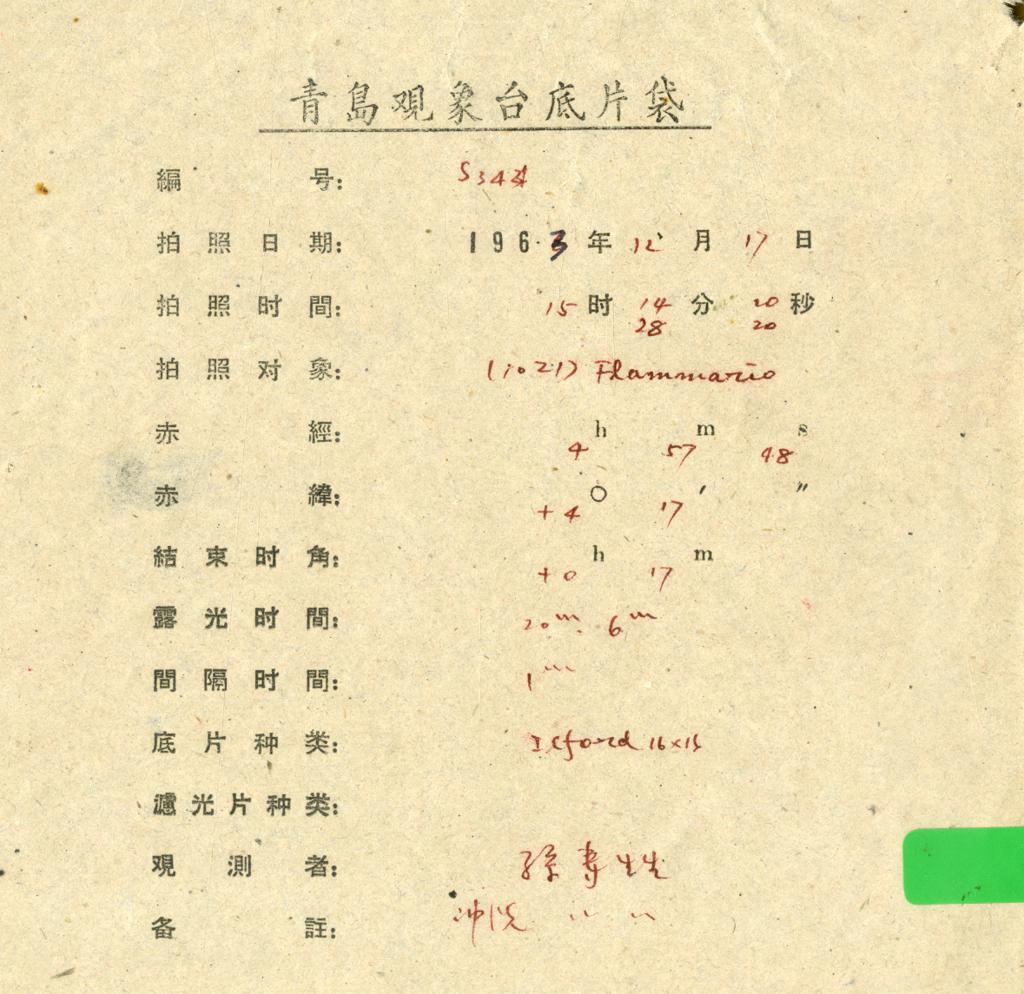 青島观象台底片袋
編号: S343
拍照日期: 1963年12月17日
拍照时間: 15时14分20秒
28 20
拍照对象: (1021) Flammario
赤經: 4h 57m 48s
赤緯: +4° 17′ ″
結束时角: +0h 17m
露光时間: 20m. 6m
間隔时間: 1m
底片种类: Ilford 16×15
濾光片种类:
观測者: 孫寿
备註: 冲洗 〃 〃